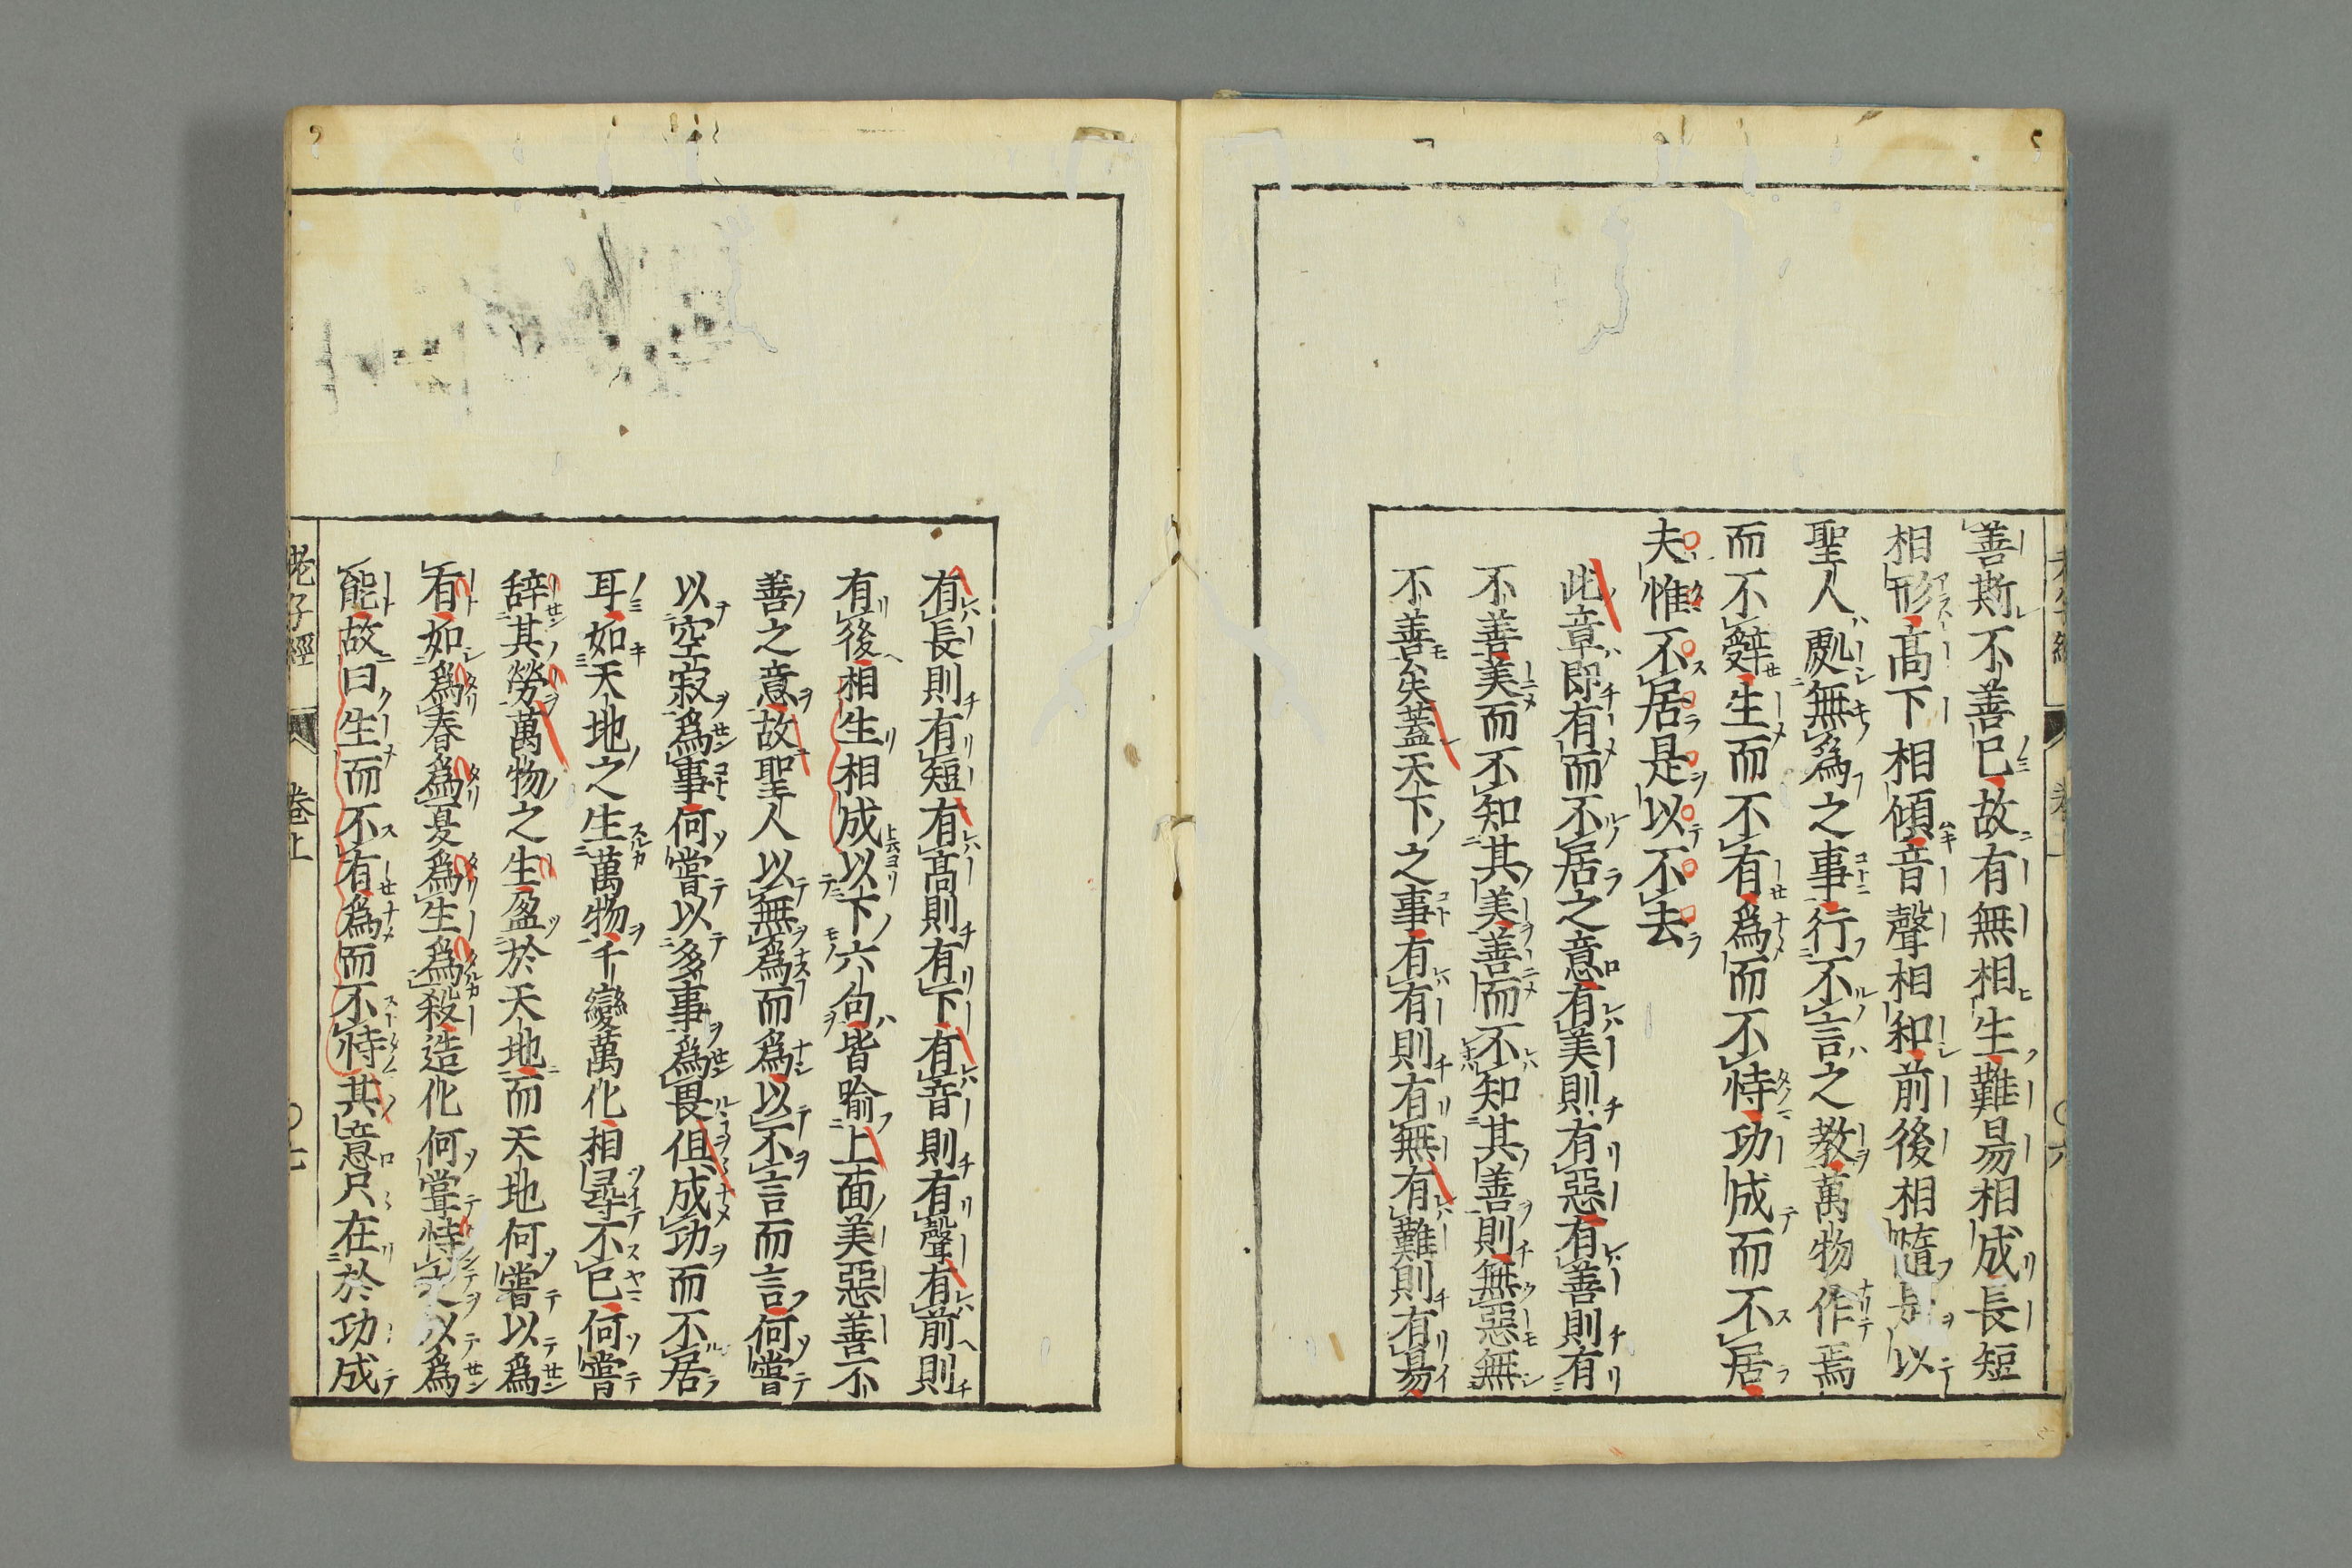 善斯不善已故有無相生難易相成長短
相形高下相傾音聲相和前後相隨是以
聖人處無爲之事行不言之教萬物作焉
而不辭生而不有爲而不恃功成而不居
夫惟不居是以不去
此章即有而不居之意有美則有惡有善則有
不善美而不知其美善而不知其善則無惡無
不善矣蓋天下之事有有則有無有難則有易
有長則有短有高則有下有音則有聲有前則
有後相生相成以下六句皆喻上面美惡善不
善之意故聖人以無爲而爲以不言而言何嘗
以空寂爲事何嘗以多事爲畏但成功而不居
耳如天地之生萬物千變萬化相尋不已何嘗
辭其勞萬物之生盈於天地而天地何嘗以爲
有如爲春爲夏爲生爲殺造化何嘗恃之以爲
能故曰生而不有爲而不恃其意只在於功成
老子經 卷上 〇七